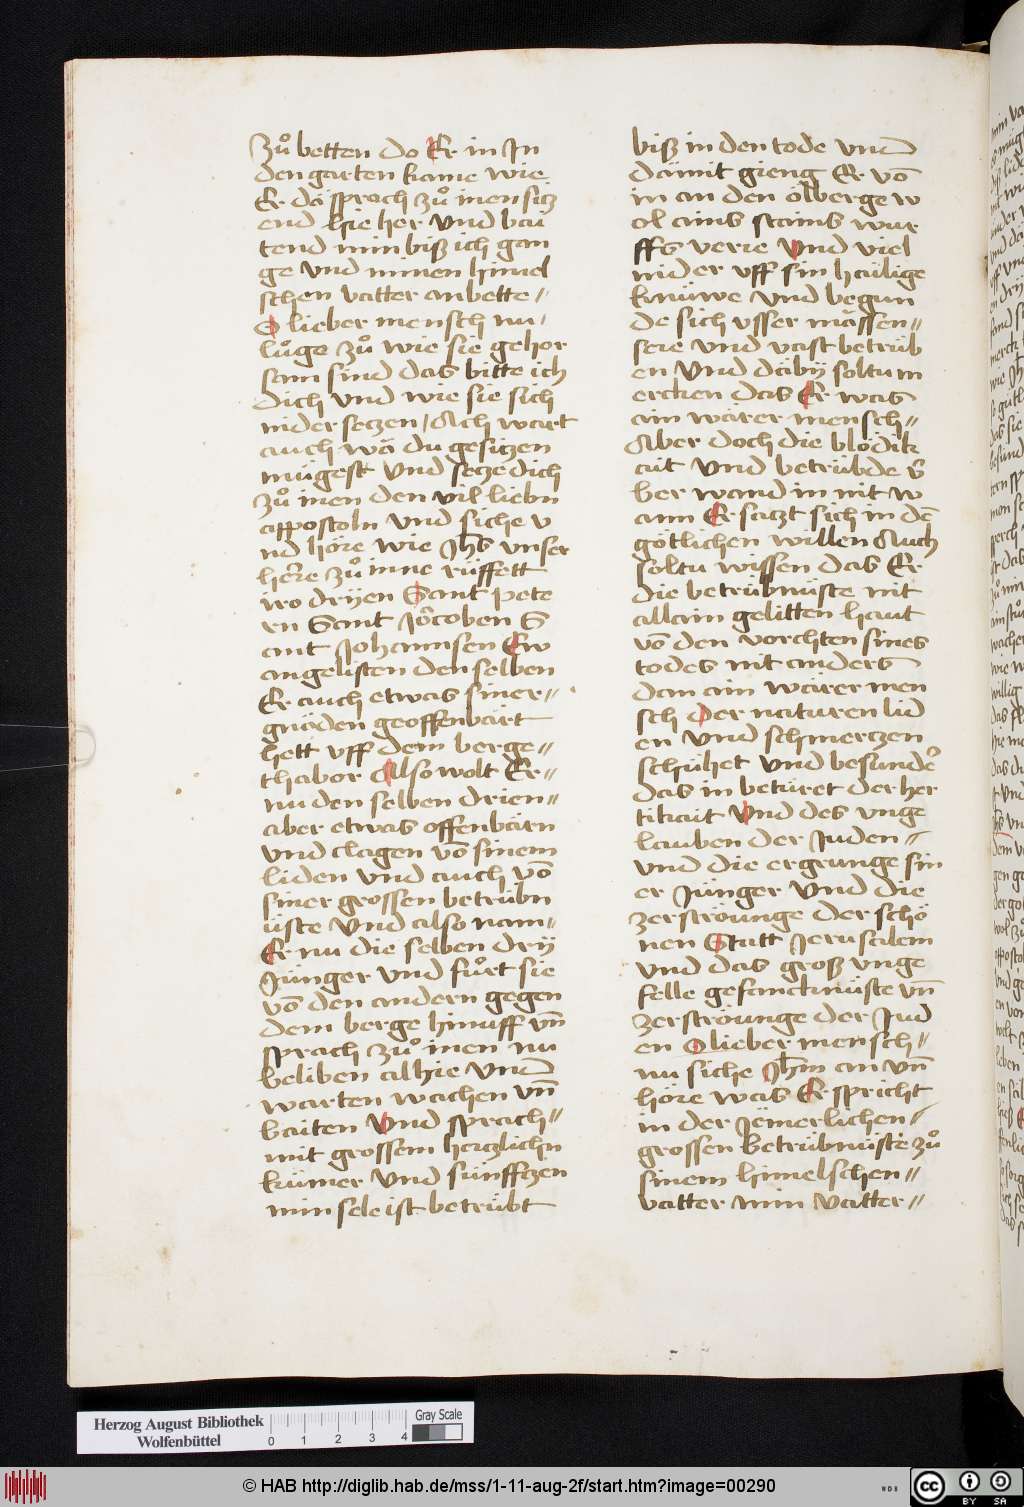 Zuͦ betten do Er in In
den garten kame wie
Er da sprach zuͦ inen sitz
end hie her vnd bai
tend min biß ich gan
ge vnd minen himel
schen vatter anbette //
O lieber mensch nu /
luͦge zuͦ wie sie gehor
sam sind das bitte ich
dich vnd wie sie sich
nider setzen / Ach wart
auch wa du gesitzen
mügest vnd setze dich
zuͦ inen den vil liebn
appostoln vnd siche v
nd höre wie Jhs vnser
herre zuͦ inne rüffett
iro dryen Sant pete
rn Sant Jocoben S
ant Johannsen Ew
angelisten den selben
Er auch etwas siner //
gnäden geoffenbärt
hett vff dem berge //
thabor Also wolt Er //
nu den selben drien //
aber etwas offenbärn
vnd clagen vō sinem
liden vnd auch vō
siner grossen betrübn
üste vnd also nam //
Er nu die selben drÿ
Jünger vnd fuͦrt sie
vō den andern gegen
dem berge hinuff vn̄
sprach zuͦ inen nu
beliben alhie vnd
warten wachen vn̄
baiten Vnd sprach //
mit grossem hertzlichn
kümer vnd sünfftzen
min sele ist betrübt
biß in den tode vnd
dämit gieng Er vō
in an den ölberge w
ol ains stains wur
ffs verre Vnd viel
nider vff sin hailige
knüwe vnd begun
de sich vsser mässen //
sere vnd vast betrüb
en vnd däbÿ soltu m
ercken das Er was
ain wärer mensch //
Aber doch die blödik
ait vnd betrübde v̄
ber wand in nit w
ann Er satzt sich in dē
götlichen willen Auch
soltu wissen das Er
die betrübnüste nit
allain gelitten haut
vō den vorchten sines
todes nit anders
dan ain wärer men
sch Der naturen lid
en vnd schmertzen
schühet vnd besunder
das in betüret der her
tikait Vnd des vnge
lauben der Juden //
vnd die ergrunge sin
er Jünger vnd die
zerströunge der schö
nen Statt Jerusalem
vnd das groß vnge
felle gefancknüste vn̄
zerströunge der Jud
en O lieber mensch //
nu siche Jhm an vn̄
höre was Er spricht
in der Jemerlichen //
grossen betrübnüste zuͦ
sinem himelschen //
vatter min vatter //
Herzog August Bibliothek
Wolfenbüttel
0 1 2 3 4
Gray Scale
© HAB http://diglib.hab.de/mss/1-11-aug-2f/start.htm?image=00290
WDB
cc BY SA